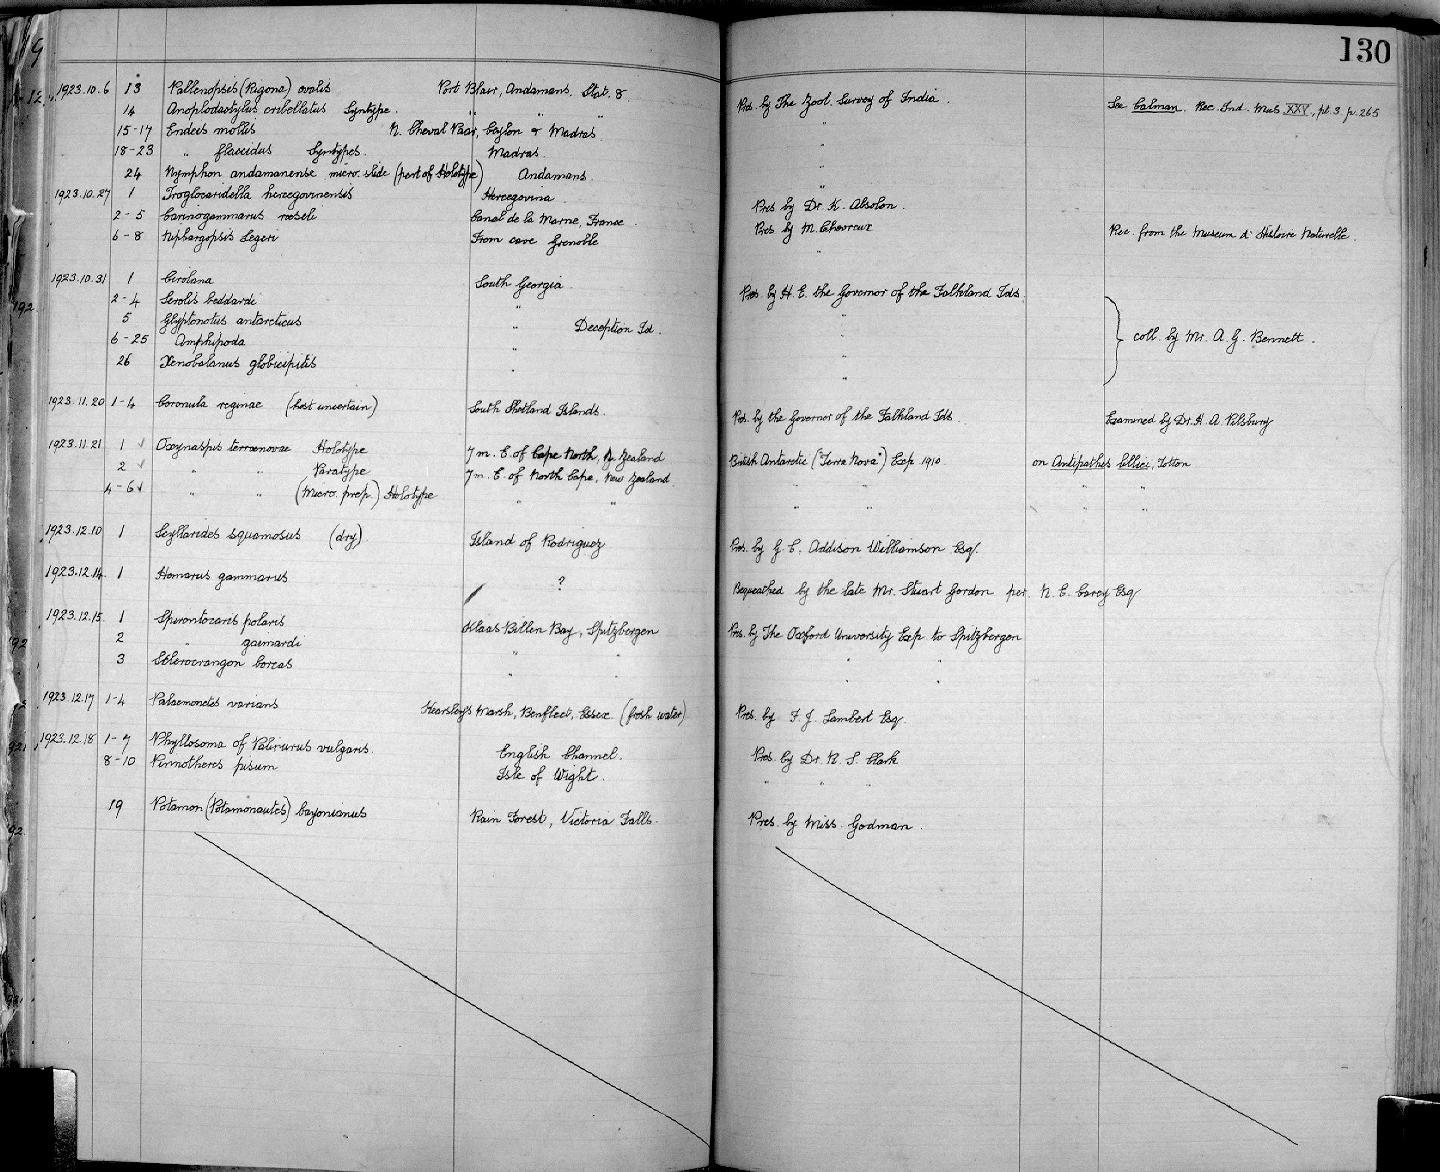 130
1923.10.6 13 Pallenopsis (Rigona) ovalis Port Blair, Andamans. Stat. 8 Pres. by The Zool. Survey of India. See Calman. Rec. Ind. Mus XXV, pt. 3 p. 265
14 Anoplodactylus cribellatus Syntype. " " "
15-17 Endeis mollis N. Cheval Paar, Ceylon & Madras "
18-23 " flaccidus Syntypes. Madras. "
24 Nymphon andamanense micro. slide (part of Holotype) Andamans. "
1923.10.27 1 Troglocaridella hercegovinensis Hercegovina Pres by Dr. K. Absolon.
2-5 Carinogammarus roeseli Canal de la Marne, France. Pres by M. Chevreux Rec. from the Museum d'Histoire Naturelle.
6-8 Niphargopsis Legeri From cave Grenoble "
1923.10.31 1 Cirolana South Georgia Pres by H.E. the Governor of the Falkland Ids.
2-4 Serolis beddardi " "
5 Glyptonotus antarcticus " Deception Id. " coll. by Mr. A. G. Bennett.
6-25 Amphipoda " "
26 Xenobalanus globicipitis " "
1923.11.20 1-4 Coronula reginae (host uncertain) South Shetland Islands. Pres. by the Governor of the Falkland Ids. Examined by Dr. H. A. Pilsbury
1923.11.21 1 ✓ Oxynaspis terraenovae Holotype 7 m. E. of Cape North, N. Zealand British Antarctic ("Terra Nova") Exp. 1910 on Antipathes lilliei, Totton
2 ✓ " " Paratype 7 m. E. of North Cape, New Zealand. " " " "
4-6 ✓ " " (Micro. prep.) Holotype " "
1923.12.10 1 Scyllarides squamosus (dry) Island of Rodriguez Pres. by G. C. Addison Williamson Esq.
1923.12.14 1 Homarus gammarus ? Bequeathed by the late Mr. Stuart Gordon per. N. E. Carey Esq
1923.12.15 1 Spirontocaris polaris Klaas Billen Bay, Spitzbergen Pres. by The Oxford University Exp. to Spitzbergen
2 " gaimardi " " " "
3 Sclerocrangon boreas " " " "
1923.12.17 1-4 Palaemonetes varians Hearsley's Marsh, Benfleet, Essex (fresh water) Pres. by F. J. Lambert Esq.
1923.12.18 1-7 Phyllosoma of Palinurus vulgaris. English Channel. Pres. by Dr. R. S. Clark
8-10 Pinnotheres pisum Isle of Wight. " "
19 Potamon (Potamonautes) bayonianus Rain Forest, Victoria Falls. Pres. by Miss Godman.